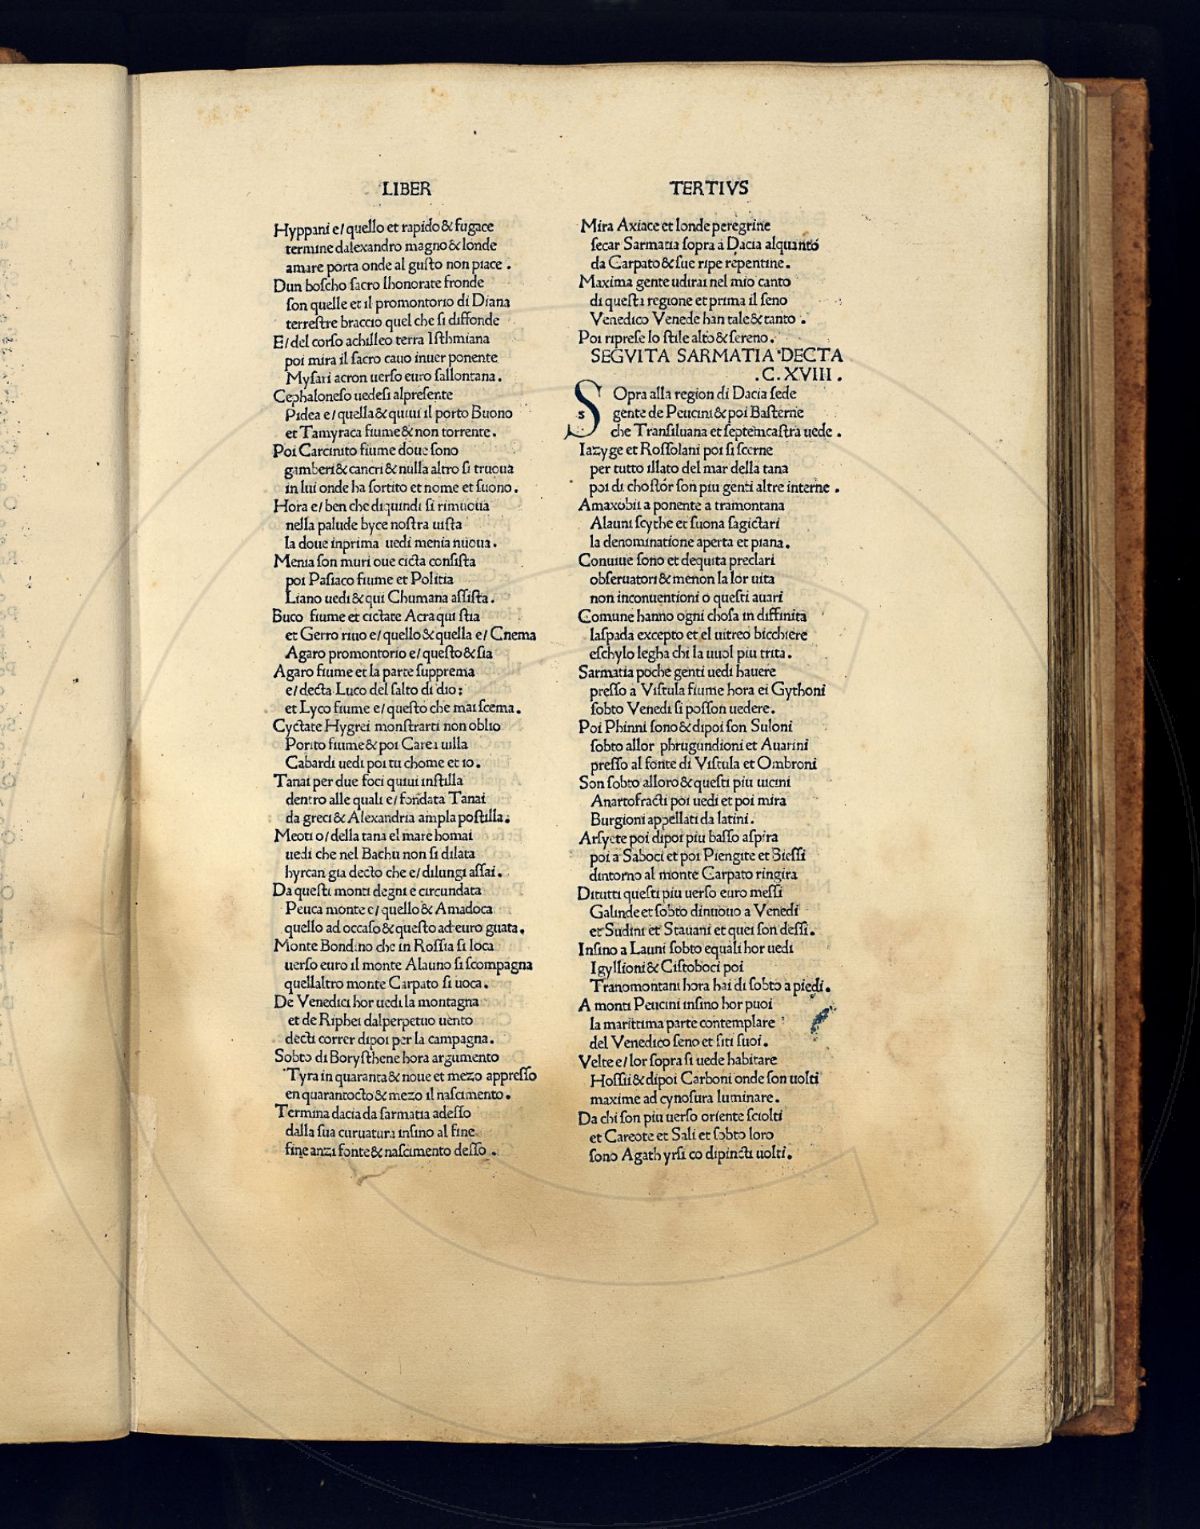 LIBER
Hyppani e/ quello et rapido & fugace
termine dalexandro magno & londe
amare porta onde al gusto non piace .
Dun boscho sacro lhonorate fronde
son quelle et il promontorio di Diana
terrestre braccio quel che si diffonde
E/ del corso achilleo terra Isthmiana
poi mira il sacro cauo inuer ponente
Mysari acron uerso euro sallontana .
Cephaloneso uedesi alpresente
Pidea e/ quella & quiui il porto Buono
et Tamyraca fiume & non torrente .
Poi Carcinito fiume doue sono
gamberi & cancri & nulla altro si truoua
in lui onde ha sortito et nome et suono .
Hora e/ ben che diquindi si rimuoua
nella palude byce nostra uista
la doue inprima uedi menia nuoua .
Menia son muri oue cicta consista
poi Pasiaco fiume et Politia
Liano uedi & qui Chumana assista .
Buco fiume et cictate Acra qui stia
et Gerro riuo e/ quello & quella e/ Cnema
Agaro promontorio e/ questo & sia
Agaro fiume et la parte supprema
e/ decta Luco del salto di dio :
et Lyco fiume e/ questo che mai scema .
Cyctate Hygrei monstrarti non oblio
Porito fiume & poi Carei uilla
Cabardi uedi poi tu chome et io .
Tanai per due foci quiui instilla
dentro alle quali e/ fondata Tanai
da greci & Alexandria ampla postilla .
Meoti o/ della tana el mare homai
uedi che nel Bachu non si dilata
hyrcan gia decto che e/ dilungi assai .
Da questi monti degni e circundata
Peuca monte e/ quello & Amadoca
quello ad occaso & questo ad euro guata .
Monte Bondino che in Rossia si loca
uerso euro il monte Alauno si scompagna
quellaltro monte Carpato si uoca .
De Venedici hor uedi la montagna
et de Riphei dalperpetuo uento
decti correr dipoi per la campagna .
Sobto di Borysthene hora argumento
Tyra in quaranta & noue et mezo appresso
en quarantocto & mezo il nascimento .
Termina dacia da sarmatia adesso
dalla sua curuatura insino al fine
fine anzi fonte & nascimento desso .
TERTIVS
Mira Axiace et londe peregrine
secar Sarmatia sopra a Dacia alquanto
da Carpato & sue ripe repentine .
Maxima gente udirai nel mio canto
di questa regione et prima il seno
Venedico Venede han tale & tanto .
Poi riprese lo stile alto & sereno .
SEGVITA SARMATIA DECTA
.C. XVIII .
S Opra alla region di Dacia sede
s gente de Peucini & poi Basterne
che Transiluana et septemcastra uede .
Iazyge et Rossolani poi si scerne
per tutto illato del mar della tana
poi di chostor son piu genti altre interne .
Amaxobii a ponente a tramontana
Alauni scythe et suona sagictari
la denominatione aperta et piana .
Conuiue sono et dequita preclari
obseruatori & menon la lor uita
non inconuentioni o questi auari
Comune hanno ogni chosa in diffinita
laspada excepto et el uitreo bicchiere
eschylo legha chi la uuol piu trita .
Sarmatia poche genti uedi hauere
presso a Vistula fiume hora ei Gythoni
sobto Venedi si posson uedere .
Poi Phinni sono & dipoi son Suloni
sobto allor phrugundioni et Auarini
presso al fonte di Vistula et Ombroni
Son sobto alloro & questi piu uicini
Anartofracti poi uedi et poi mira
Burgioni appellati da latini .
Arsyete poi dipoi piu basso aspira
poi a Saboci et poi Piengite et Biessi
dintorno al monte Carpato ringira
Ditutti questi piu uerso euro messi
Galinde et sobto dinuouo a Venedi
et Sudini et Stauani et quei son dessi .
Insino a Launi sobto equali hor uedi
Igyllioni & Cistoboci poi
Tranomontani hora hai di sobto a piedi .
A monti Peucini insino hor puoi
la marittima parte contemplare
del Venedico seno et siti suoi .
Velte e/ lor sopra si uede habitare
Hossii & dipoi Carboni onde son uolti
maxime ad cynosura luminare .
Da chi son piu uerso oriente sciolti
et Careote et Sali et sobto loro
sono Agathyrsi co dipincti uolti .